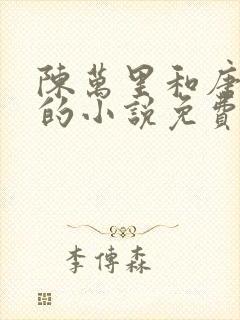 陳萬里和唐
的小說免費
李傳森